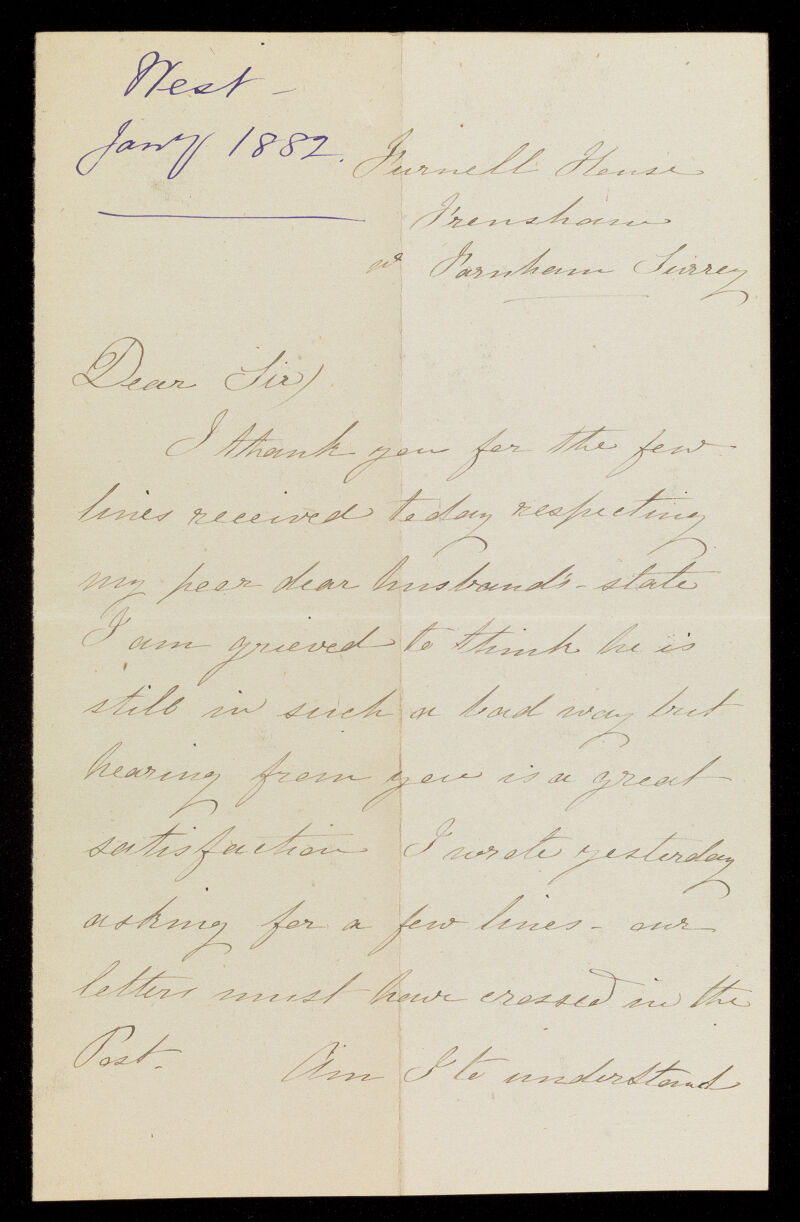 West -
Jany 1882.
Furnell House
Frensham
nr Farnham Surrey
Dear Sir)
I thank you for the few
lines received today respecting
my poor dear husband's - state
I am grieved to think he is
still in such a bad way but
hearing from you is a great
satisfaction I wrote yesterday
asking for a few lines - our
letters must have crossed in the
Post. Am I to understand